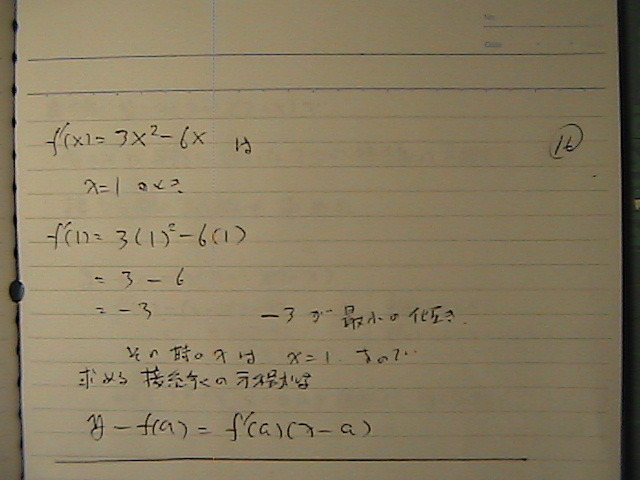 No.
Date
f'(x) = 3x² - 6x は
⑯
x=1 のとき
f'(1) = 3(1)² - 6(1)
= 3 - 6
= -3
-3 が 最小の傾き.
その時の x は x=1. なので
求める 接線の方程式は
y - f(a) = f'(a)(x - a)